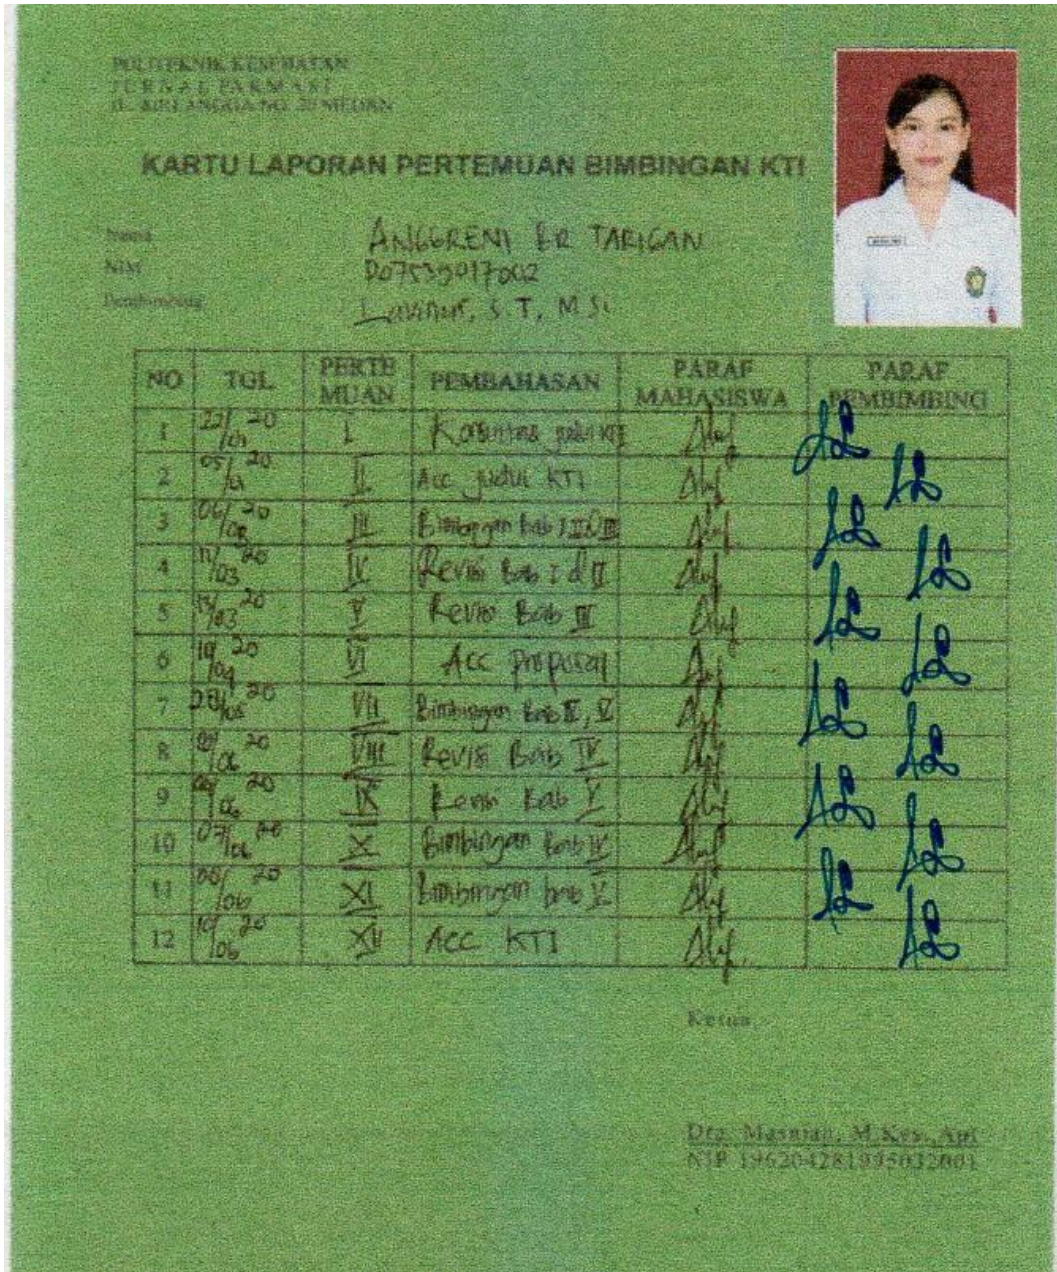 POLITEKNIK KESEHATAN
JURNAL FARMASI
JL. AIRLANGGA NO. 20 MEDAN
KARTU LAPORAN PERTEMUAN BIMBINGAN KTI
Nama ANGGRENI BR TARIGAN
NIM P07539017002
Pembimbing Lavinur, S.T, M.Si
NO TGL PERTEMUAN PEMBAHASAN PARAF MAHASISWA PARAF PEMBIMBING
1 22/01 20 I Konsultasi judul KTI
2 05/ 20 II Acc judul KTI
3 06/ 20 III Bimbingan bab I II & III
4 11/03 20 IV Revisi Bab I & II
5 13/03 20 V Revisi Bab III
6 /04 20 VI Acc proposal
7 20 VII Bimbingan Bab IV, V
8 /06 20 VIII Revisi Bab IV
9 /06 20 IX Revisi Bab V
10 07/06 20 X Bimbingan bab IV
11 /06 20 XI Bimbingan bab V
12 10/06 20 XII ACC KTI
Ketua
Dra. Masniah, M.Kes., Apt
NIP 196204281995032001